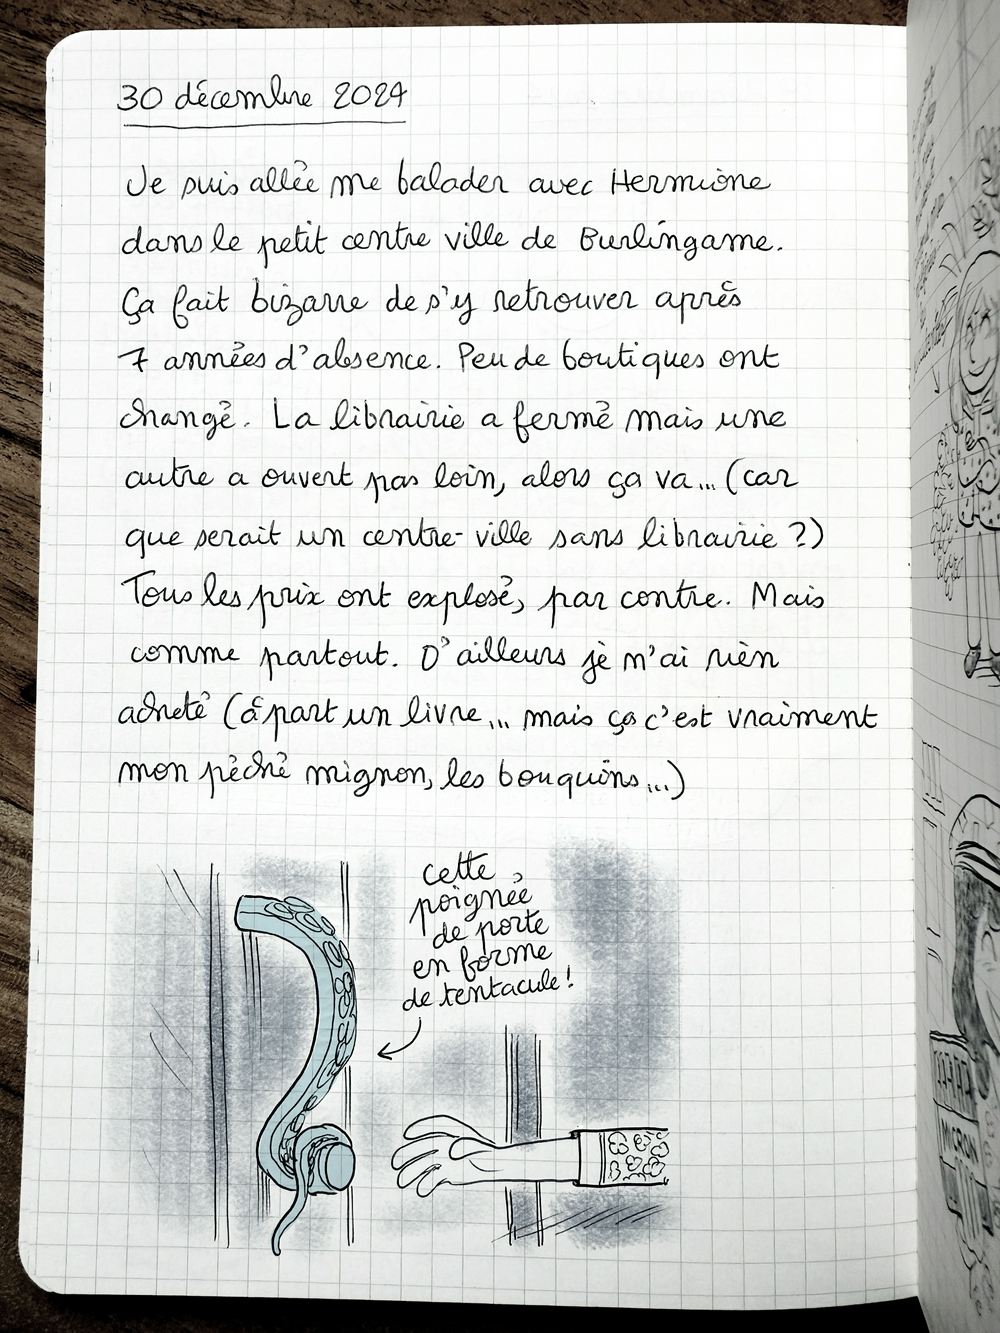 30 décembre 2024
Je suis allée me balader avec Hermione
dans le petit centre ville de Burlingame.
Ça fait bizarre de s'y retrouver après
7 années d'absence. Peu de boutiques ont
changé. La librairie a fermé mais une
autre a ouvert pas loin, alors ça va... (car
que serait un centre-ville sans librairie ?)
Tous les prix ont explosé, par contre. Mais
comme partout. D'ailleurs je m'ai rien
acheté (à part un livre... mais ça c'est vraiment
mon péché mignon, les bouquins...)
cette
poignée
de porte
en forme
de tentacule !
MIGNON